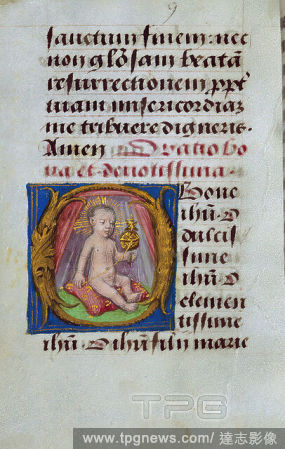 9
sanctum finem: nec
non glosam beatā
resurrectionem ppe
tuam misericordias
me tribuere digneris.
Amen Oratio bo
na et devotissima.
O Bone
ihū O
dulcis
sime
ihū O
clemen
tissime
ihū. O ihū fili marie
TPG
www.tpgnews.com/達志影像